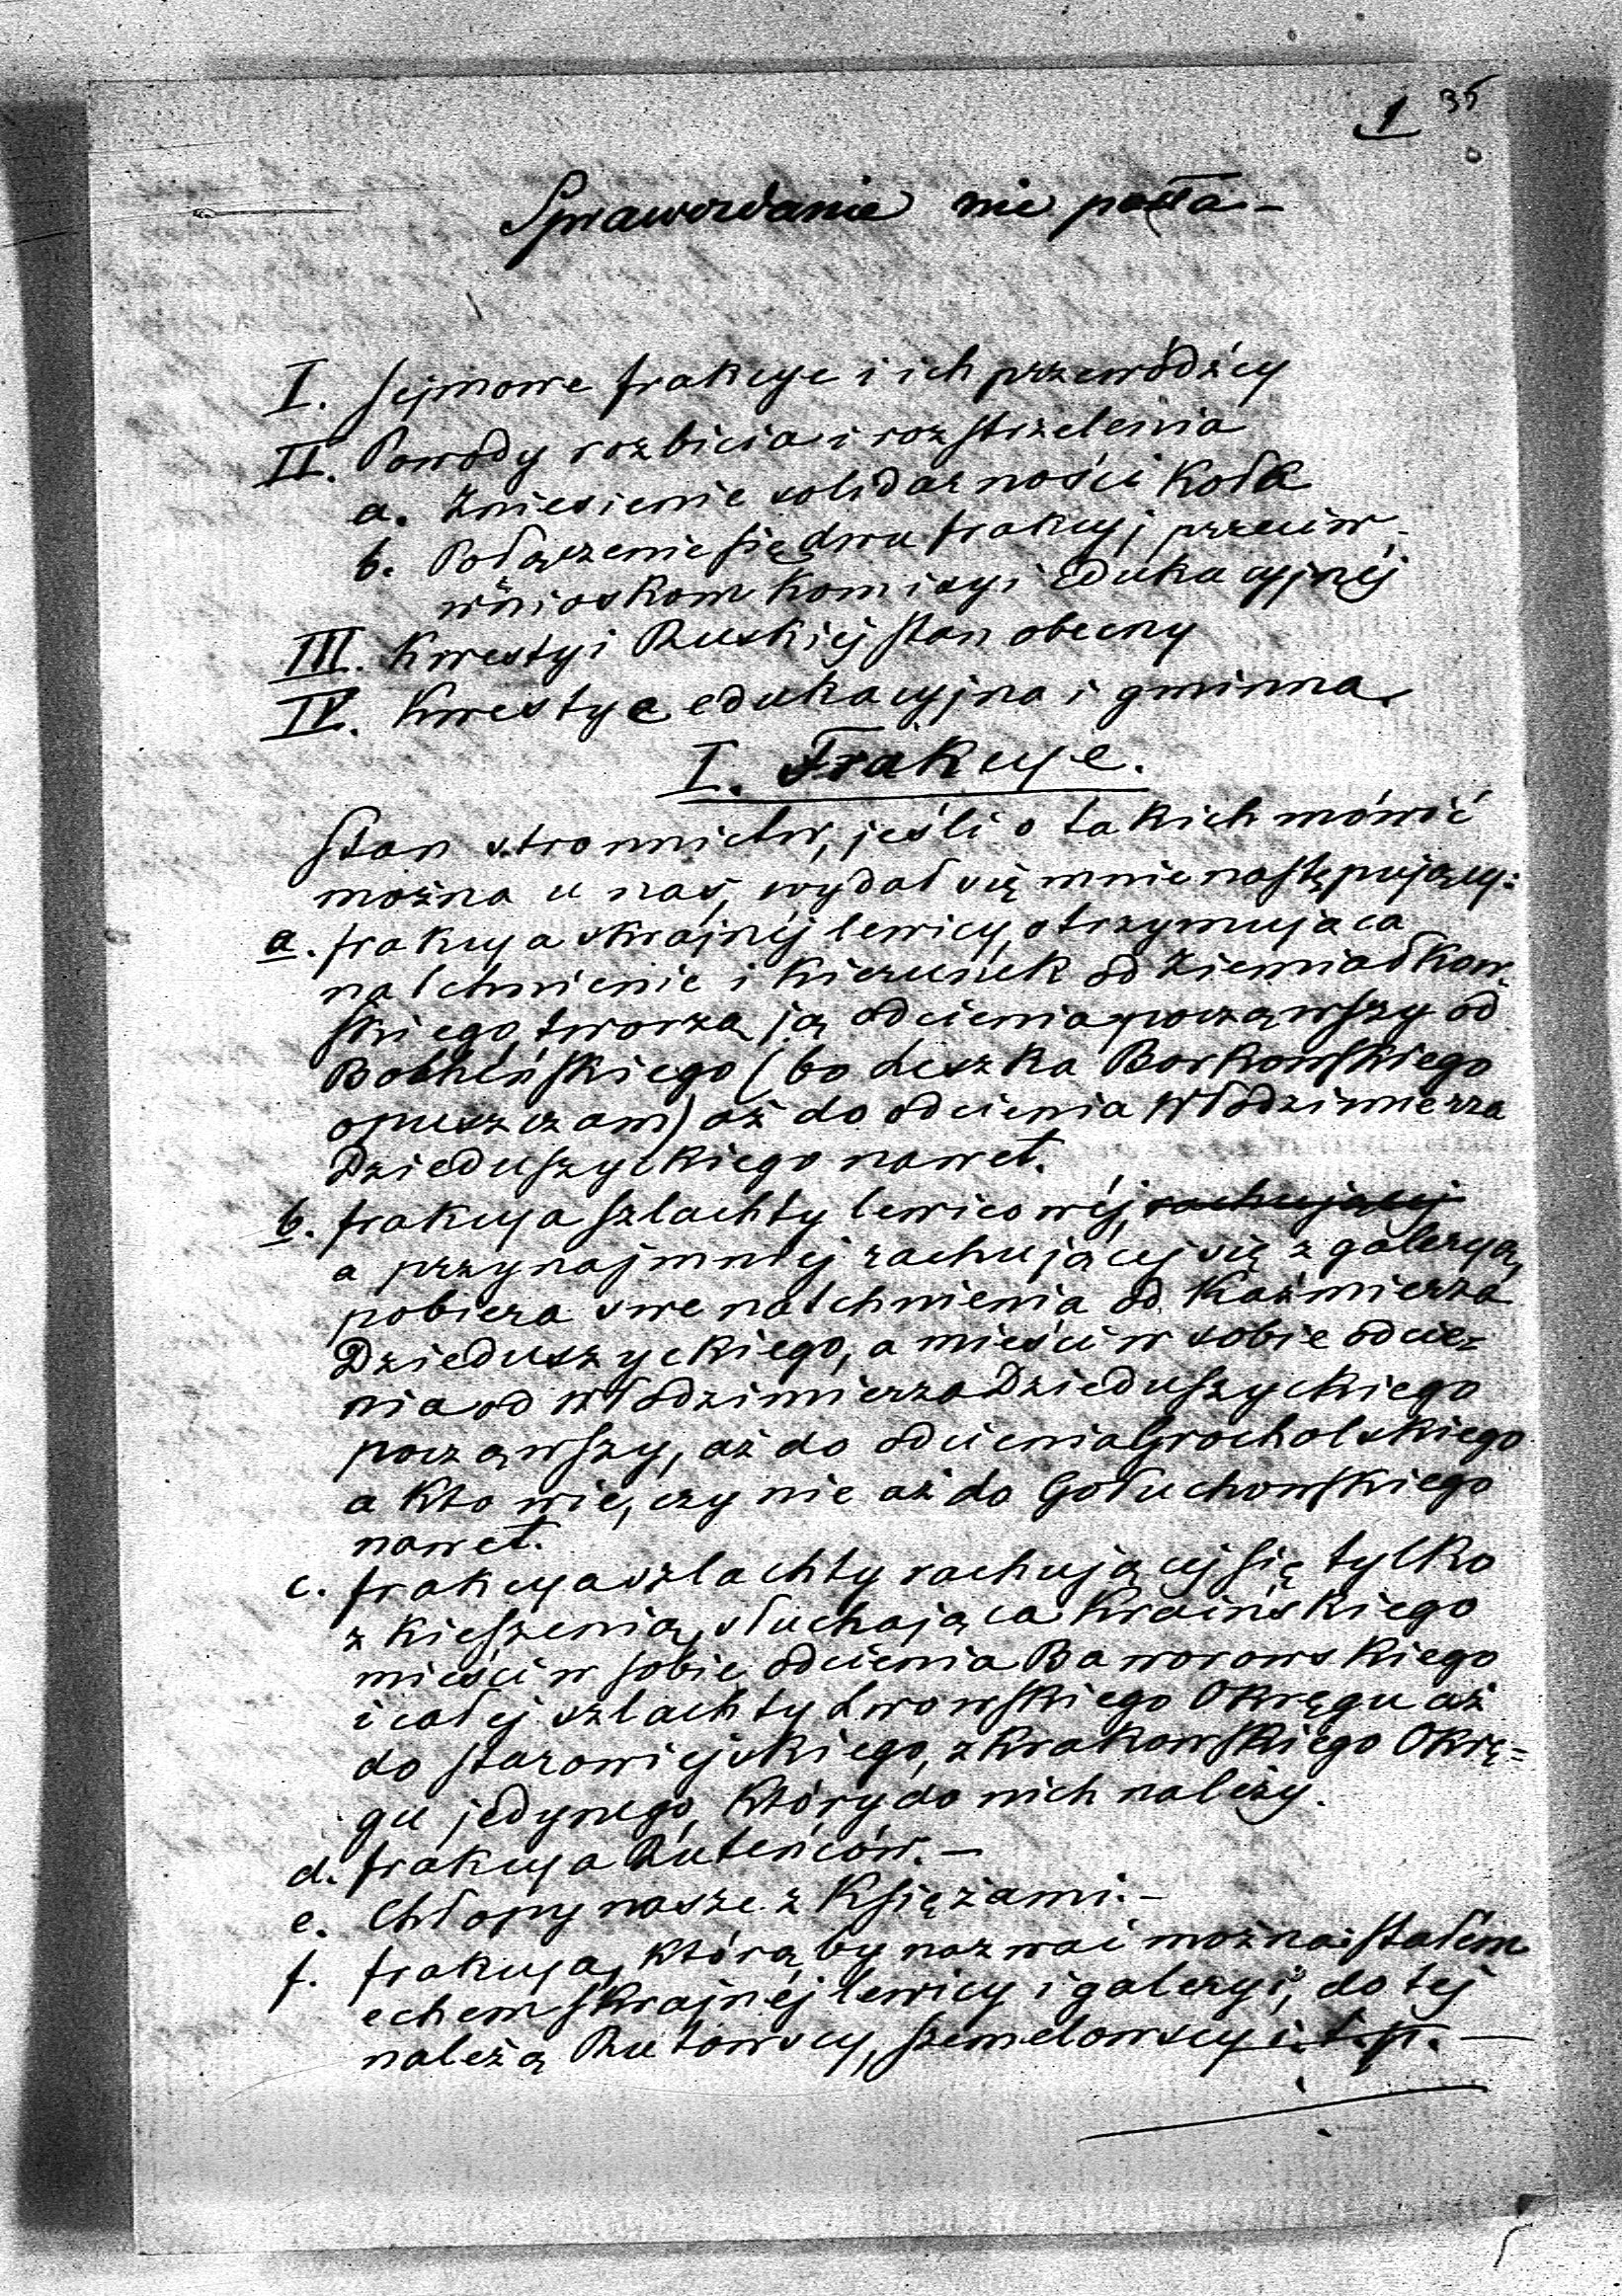 1 35
Sprawozdanie nie posła —
I. Sejmowe frakcye i ich przewódźcy
II. Powody rozbicia i rozstrzelenia
a. Zniesienie solidarności Koła
b. Połączenie się dwu frakcyj przeciw
wnioskom Komisyi Edukacyjnéj
III. Kwestyi Ruskiéj stan obecny
IV. Kwestye edukacyjna i gminna
I. Frakcye.
Stan stronnictw, jeśli o takich mówić
można u nas, wydał się mnie następujący:
a. frakcya skrajnéj lewicy, otrzymująca
natchnienie i kierunek od Ziemiałkow-
skiego, tworzą ją odcienia począwszy od
Bocheńskiego (bo Leszka Borkowskiego
opuszczam) aż do odcienia Włodzimierza
Dzieduszyckiego nawet.
b. frakcya szlachty lewicowéj, rachującéj
a przynajmniej rachującej się z galeryą,
pobiera swe natchnienia od Kaźmierza
Dzieduszyckiego, a mieści w sobie odcie=
nia od Włodzimierza Dzieduszyckiego
począwszy, aż do odcienia Grocholskiego
a kto wie, czy nie aż do Gołuchowskiego
nawet.
c. frakcya szlachty rachującej się tylko
z kieszenią, słuchająca Kraińskiego
mieści w sobie odcienia Baworowskiego
i całej szlachty Lwowskiego Okręgu aż
do Starowiejskiego, z Krakowskiego Okrę=
gu jedynego, który do nich należy.
d. frakcya Ruteńców. —
e. Chłopy nasze z Księżami. —
f. frakcya, którą by nazwać można stałém
echem skrajnéj lewicy i galeryi, do tej
należą Rutowscy, Szemelowscy i t. p. —